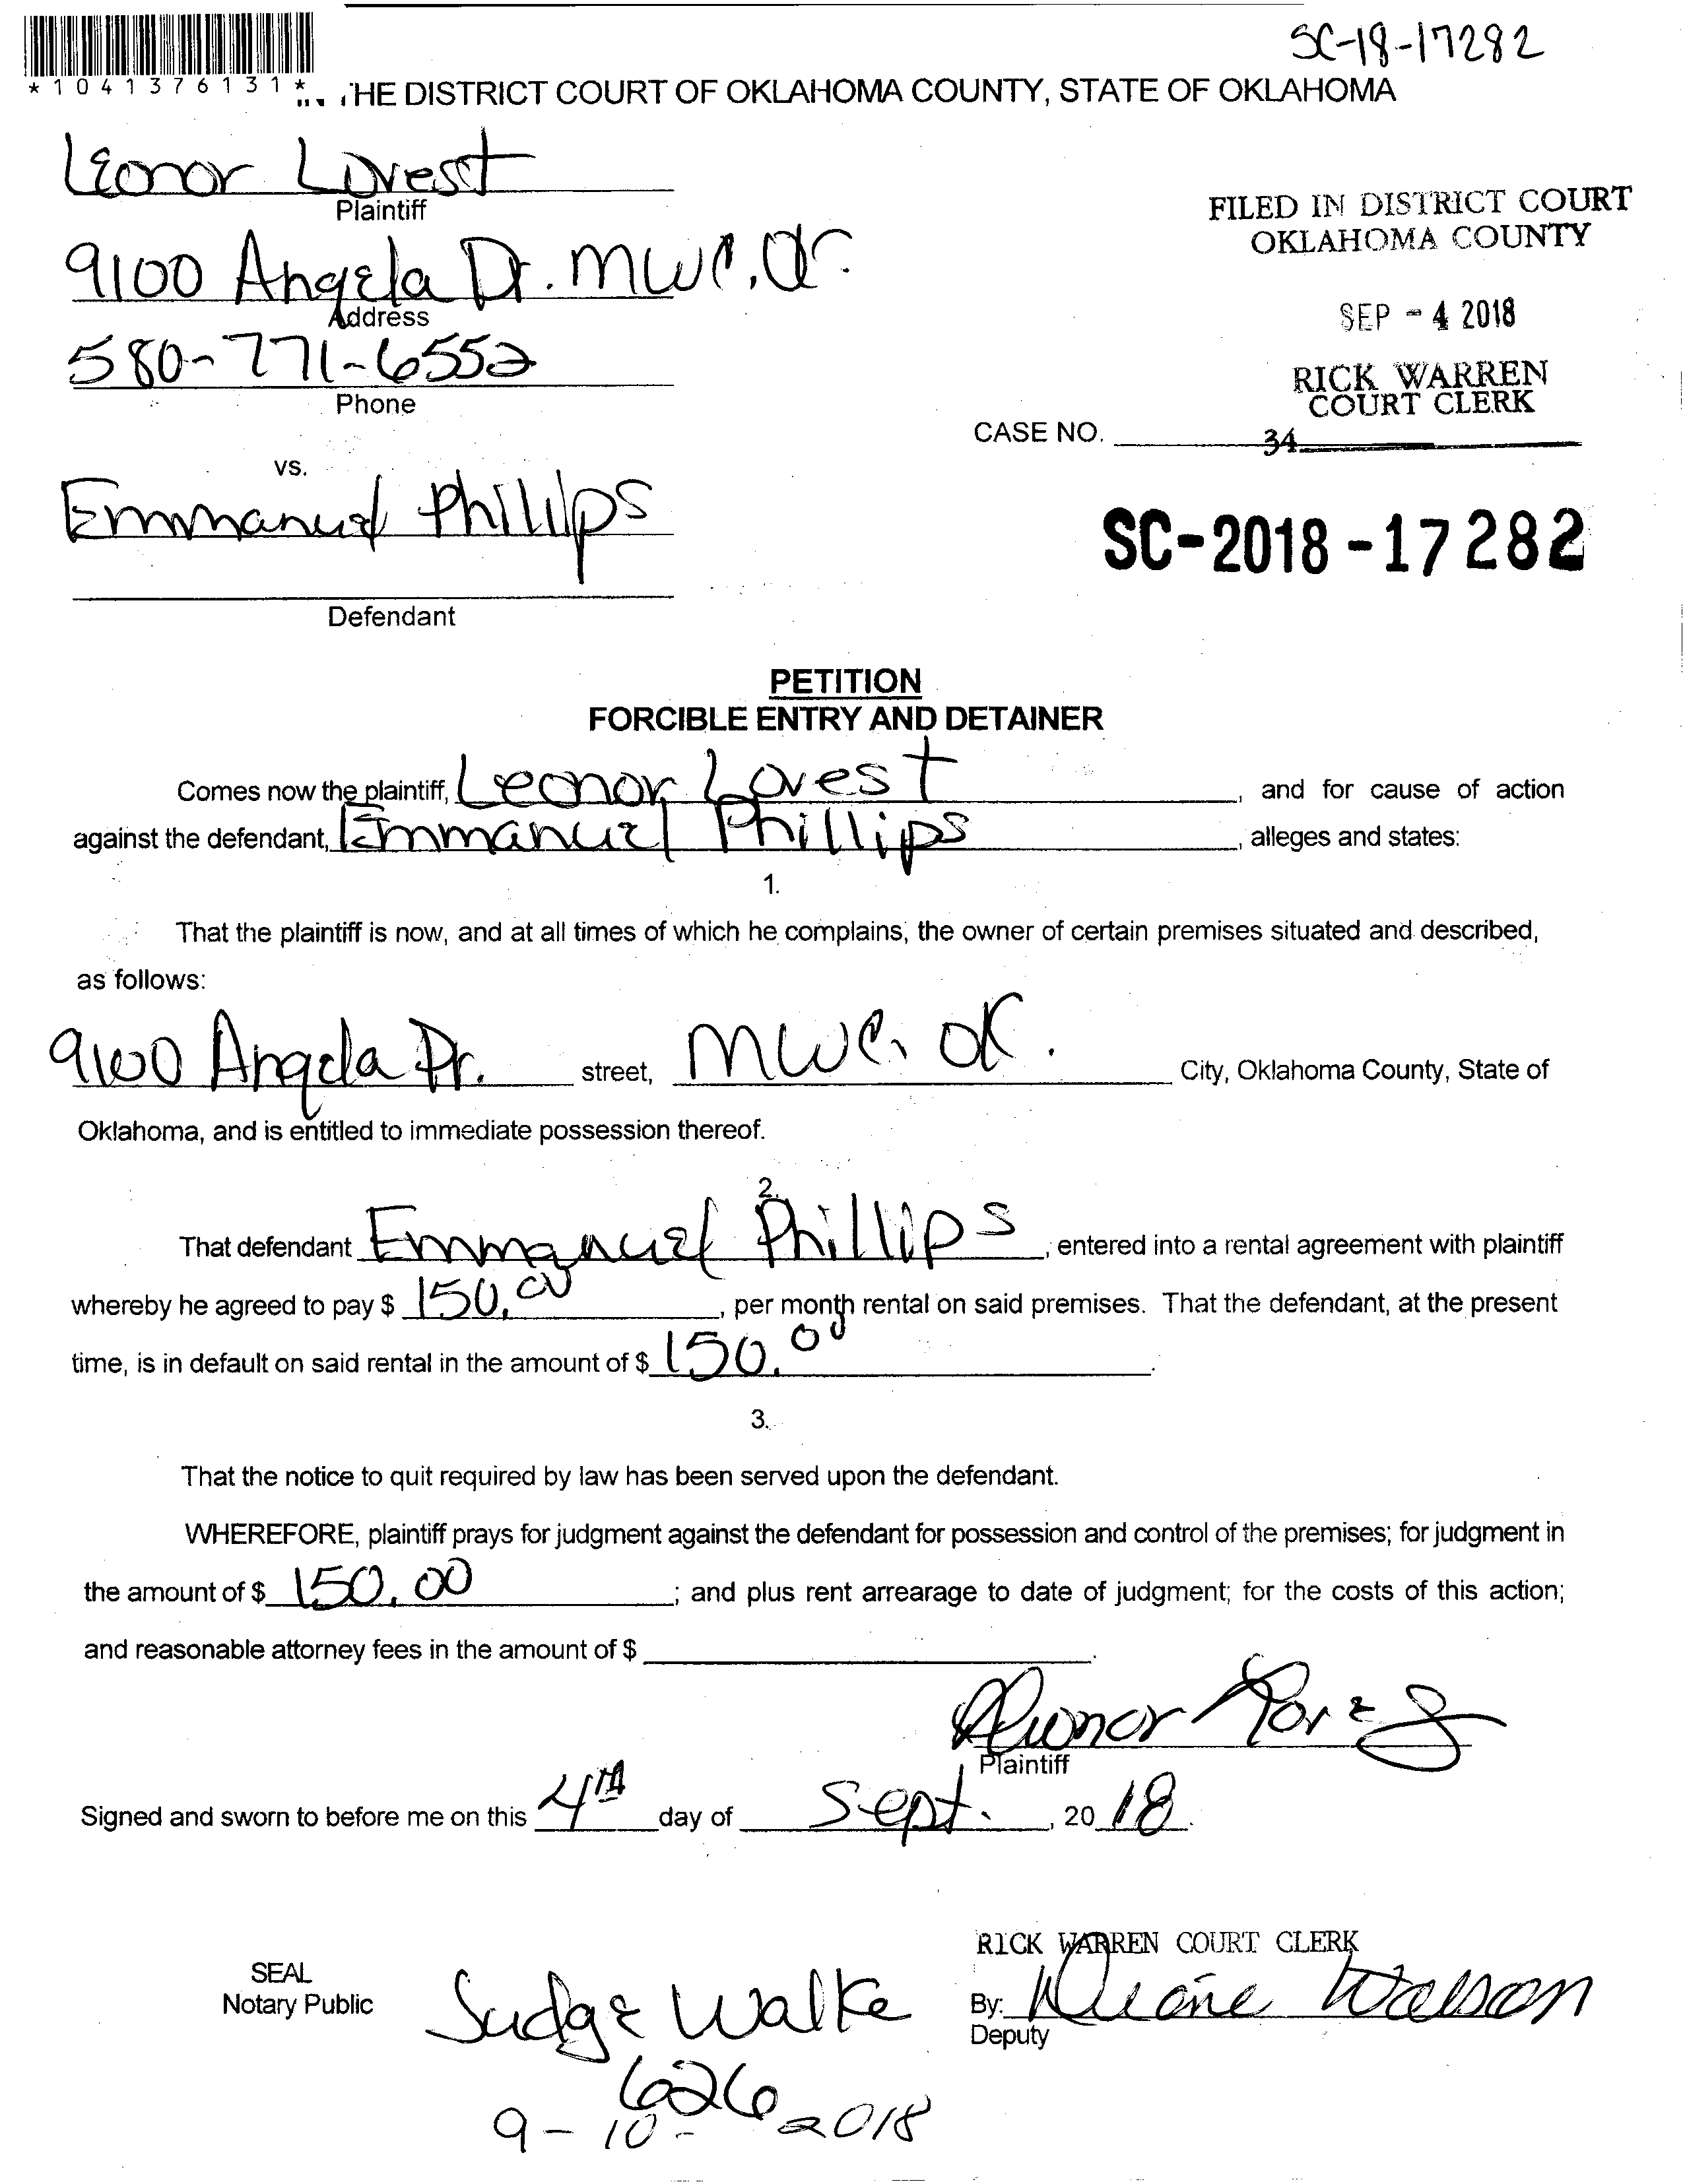 SC-18-17282
*1041376131*
THE DISTRICT COURT OF OKLAHOMA COUNTY, STATE OF OKLAHOMA
Leonor Lovest
Plaintiff
9100 Angela Dr. MWC, OK.
Address
580-771-6552
Phone
FILED IN DISTRICT COURT
OKLAHOMA COUNTY
SEP - 4 2018
RICK WARREN
COURT CLERK
CASE NO.
34
vs.
Emmanuel Phillips
Defendant
SC-2018-17282
PETITION
FORCIBLE ENTRY AND DETAINER
Comes now the plaintiff, Leonor Lovest, and for cause of action
against the defendant, Emmanuel Phillips, alleges and states:
1.
That the plaintiff is now, and at all times of which he complains, the owner of certain premises situated and described,
as follows:
9100 Angela Dr. street, MWC, OK. City, Oklahoma County, State of
Oklahoma, and is entitled to immediate possession thereof.
2.
That defendant Emmanuel Phillips, entered into a rental agreement with plaintiff
whereby he agreed to pay $ 150.00, per month rental on said premises. That the defendant, at the present
time, is in default on said rental in the amount of $ 150.00.
3.
That the notice to quit required by law has been served upon the defendant.
WHEREFORE, plaintiff prays for judgment against the defendant for possession and control of the premises; for judgment in
the amount of $ 150.00; and plus rent arrearage to date of judgment; for the costs of this action;
and reasonable attorney fees in the amount of $ .
Plaintiff
Signed and sworn to before me on this 4th day of Sept., 20 18.
RICK WARREN COURT CLERK
SEAL
Notary Public
Judge Walke
By: Watson
Deputy
626
9-10-2018